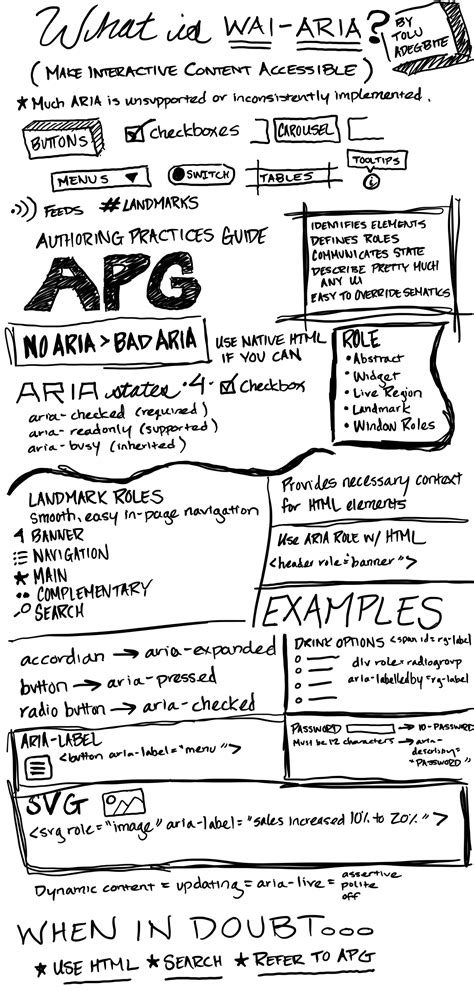 What is WAI-ARIA?
BY TOLU ADEGBITE
(MAKE INTERACTIVE CONTENT ACCESSIBLE)
★ Much ARIA is unsupported or inconsistently implemented.
BUTTONS
checkboxes
CAROUSEL
MENUS
SWITCH
TABLES
TOOLTIPS
i
FEEDS
#LANDMARKS
AUTHORING PRACTICES GUIDE
APG
IDENTIFIES ELEMENTS
DEFINES ROLES
COMMUNICATES STATE
DESCRIBE PRETTY MUCH
ANY UI
EASY TO OVERRIDE SEMATICS
NO ARIA > BAD ARIA
USE NATIVE HTML
IF YOU CAN
ROLE
• Abstract
• Widget
• Live Region
• Landmark
• Window Roles
ARIA states • 4 • checkbox
aria-checked (required)
aria-readonly (supported)
aria-busy (inherited)
LANDMARK ROLES
smooth, easy in-page navigation
BANNER
NAVIGATION
★ MAIN
COMPLEMENTARY
SEARCH
Provides necessary context
for HTML elements
USE ARIA ROLE W/ HTML
<header role="banner">
EXAMPLES
accordian → aria-expanded
button → aria-pressed
radio button → aria-checked
DRINK OPTIONS <span id=rg-label
div role=radiogroup
aria-labelledby=rg-label
ARIA-LABEL
<button aria-label="menu">
PASSWORD → ID-PASSWORD
Must be 12 characters → aria-
describedby=
"PASSWORD"
SVG
<svg role="image" aria-label="sales increased 10% to 20%">
Dynamic content = updating = aria-live =
assertive
polite
off
WHEN IN DOUBT...
★ USE HTML ★ SEARCH ★ REFER TO APG